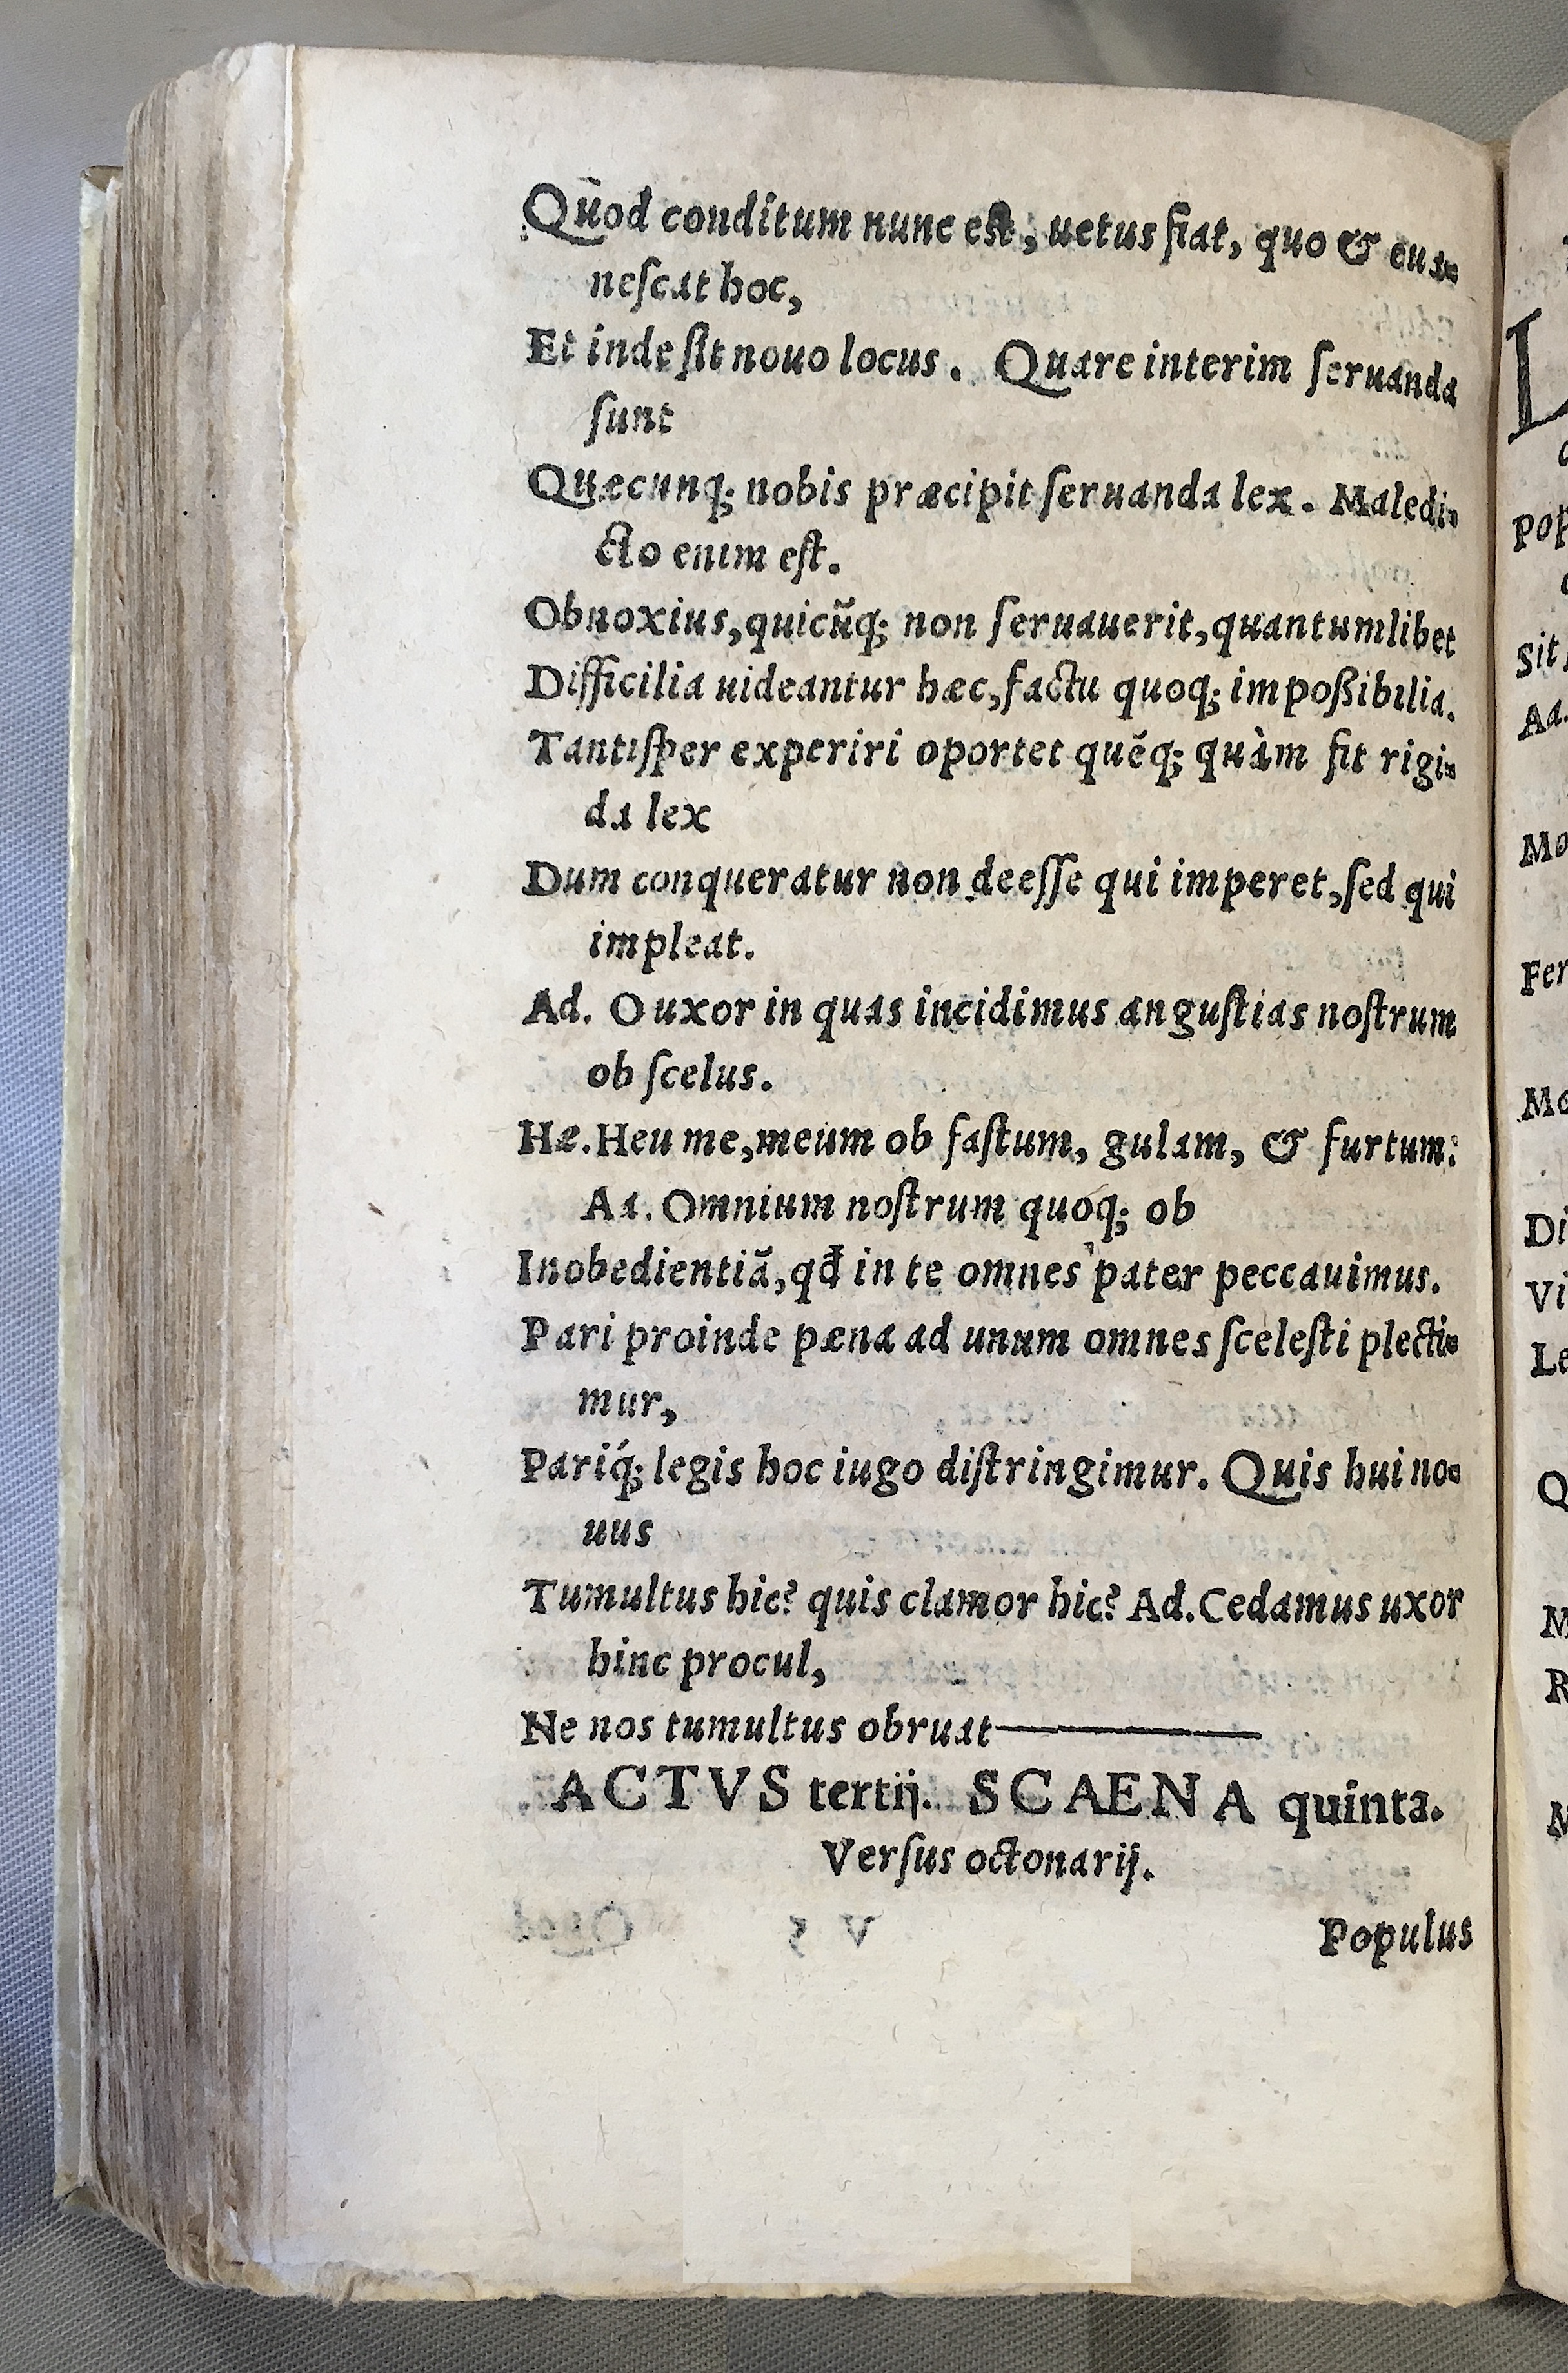 Quod conditum nunc est, uetus fiat, quo & eua⸗
neſcat hoc,
Et inde ſit nouo locus. Quare interim ſeruanda
ſunt
Quæcunq; nobis præcipit ſeruanda lex. Maledi⸗
cto enim eſt.
Obnoxius, quicũq; non ſeruauerit, quantumlibet
Difficilia uideantur hæc, factu quoq; impoßibilia.
Tantiſper experiri oportet quẽq; quàm ſit rigi⸗
da lex
Dum conqueratur non deeſſe qui imperet, ſed qui
impleat.
Ad. O uxor in quas incidimus anguſtias noſtrum
ob ſcelus.
Hæ. Heu me, meum ob faſtum, gulam, & furtum:
Aa. Omnium noſtrum quoq; ob
Inobedientiã, qđ in te omnes pater peccauimus.
Pari proinde pæna ad unum omnes ſceleſti plecti⸗
mur,
Pariq́; legis hoc iugo diſtringimur. Quis hui no⸗
uus
Tumultus hic? quis clamor hic? Ad. Cedamus uxor
hinc procul,
Ne nos tumultus obruat—
ACTVS tertij. SCAENA quinta.
Verſus octonarij.
Populus